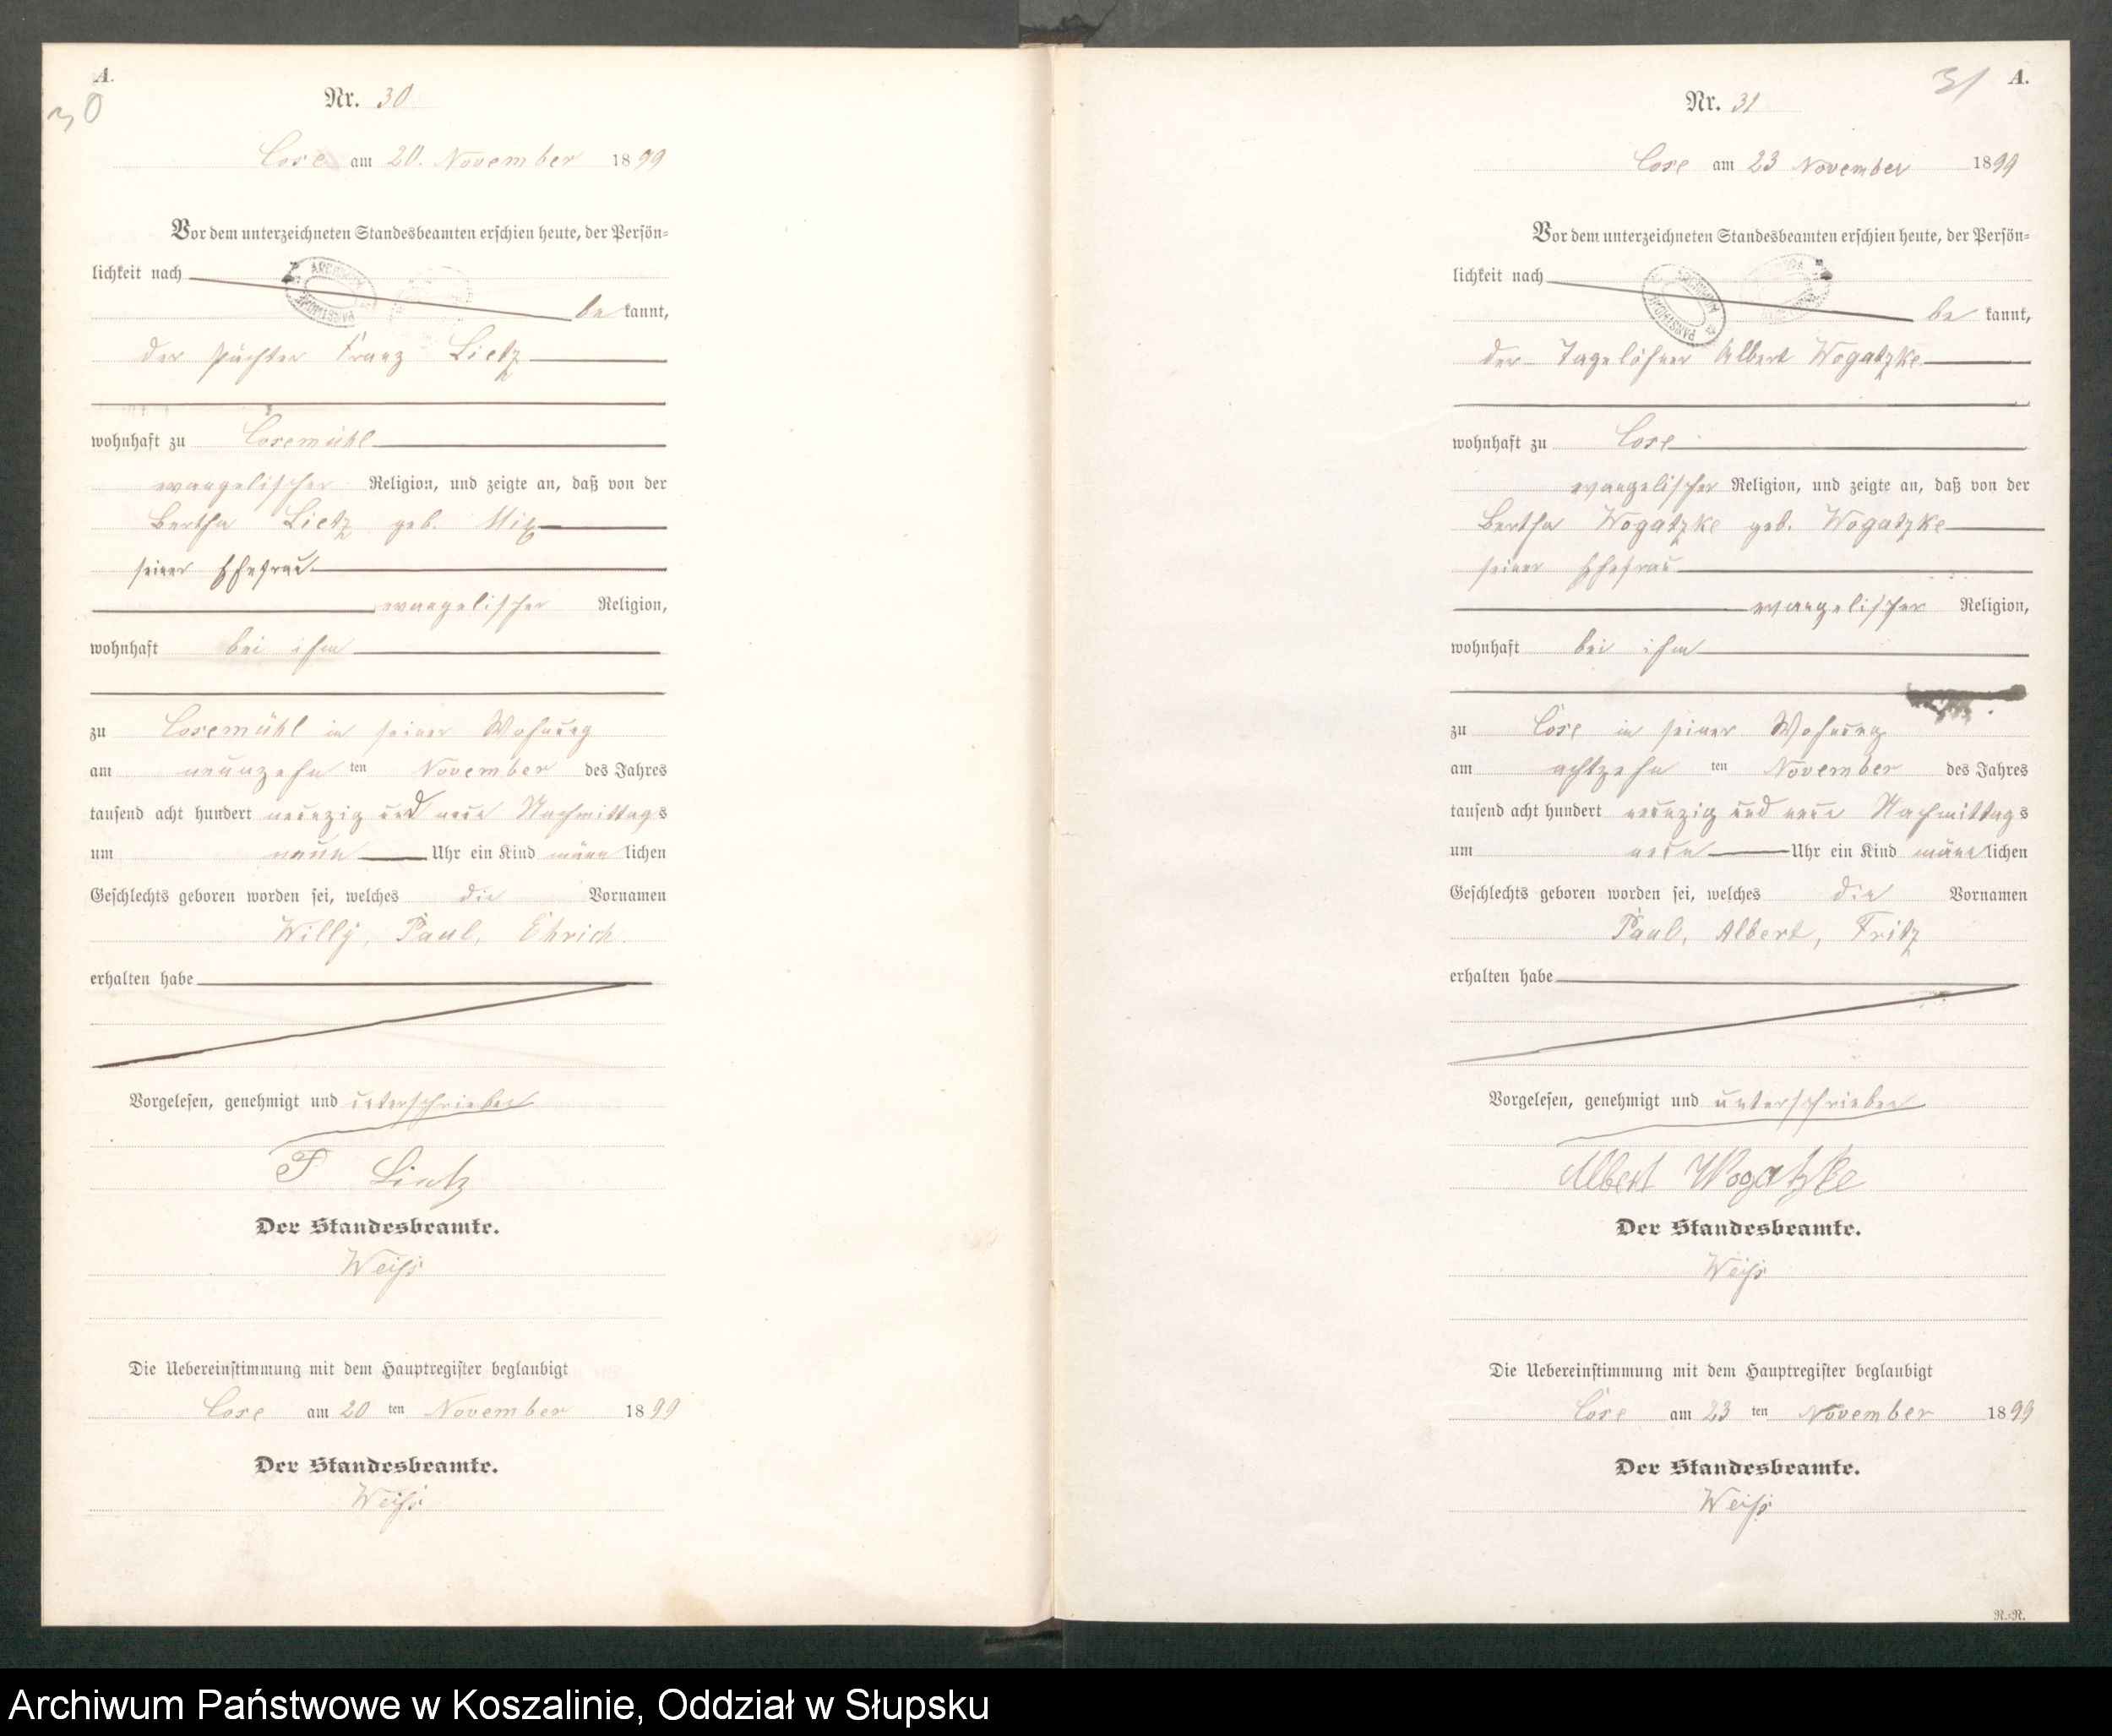 A.
30
Nr. 30
Cose am 20. November 1899
Vor dem unterzeichneten Standesbeamten erschien heute, der Persön-
lichkeit nach
be kannt,
der Pächter Franz Lietz
wohnhaft zu Cosemühl
evangelischer Religion, und zeigte an, daß von der
Bertha Lietz geb. Mix
seiner Ehefrau
evangelischer Religion,
wohnhaft bei ihm
zu Cosemühl in seiner Wohnung
am neunzehn ten November des Jahres
tausend acht hundert neunzig und neun Nachmittags
um neun Uhr ein Kind männlichen
Geschlechts geboren worden sei, welches die Vornamen
Willy, Paul, Ehrich
erhalten habe
Vorgelesen, genehmigt und unterschrieben
F Lietz
Der Standesbeamte.
Weiß
Die Uebereinstimmung mit dem Hauptregister beglaubigt
Cose am 20 ten November 1899
Der Standesbeamte.
Weiß
31 A.
Nr. 31
Cose am 23 November 1899
Vor dem unterzeichneten Standesbeamten erschien heute, der Persön-
lichkeit nach
be kannt,
der Tagelöhner Albert Wogatzke
wohnhaft zu Cose
evangelischer Religion, und zeigte an, daß von der
Bertha Wogatzke geb. Wogatzke
seiner Ehefrau
evangelischer Religion,
wohnhaft bei ihm
zu Cose in seiner Wohnung
am achtzehn ten November des Jahres
tausend acht hundert neunzig und neun Nachmittags
um neun Uhr ein Kind männlichen
Geschlechts geboren worden sei, welches die Vornamen
Paul, Albert, Fritz
erhalten habe
Vorgelesen, genehmigt und unterschrieben
Albert Wogatzke
Der Standesbeamte.
Weiß
Die Uebereinstimmung mit dem Hauptregister beglaubigt
Cose am 23 ten November 1899
Der Standesbeamte.
Weiß
R.-R.
Archiwum Państwowe w Koszalinie, Oddział w Słupsku